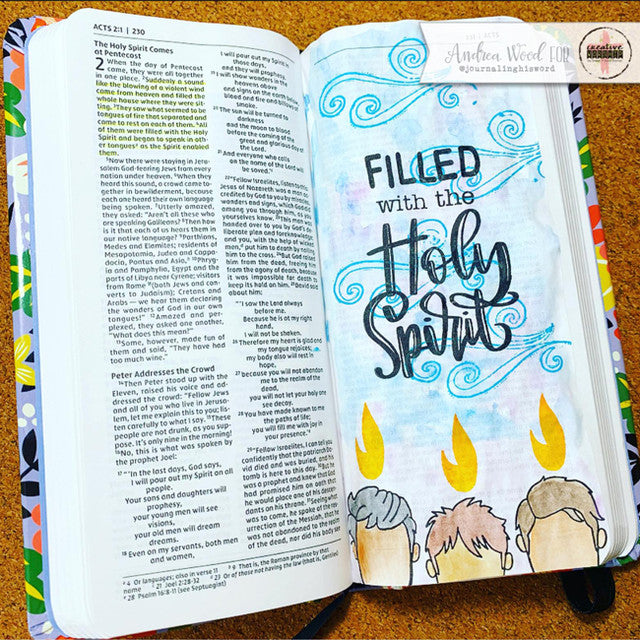 ACTS 2:1 | 230
The Holy Spirit Comes
at Pentecost
2 When the day of Pentecost
came, they were all together
in one place. 2Suddenly a sound
like the blowing of a violent wind
came from heaven and filled the
whole house where they were sit-
ting. 3They saw what seemed to be
tongues of fire that separated and
came to rest on each of them. 4All
of them were filled with the Holy
Spirit and began to speak in oth-
er tongues as the Spirit enabled
them.
5Now there were staying in Jeru-
salem God-fearing Jews from every
nation under heaven. 6When they
heard this sound, a crowd came to-
gether in bewilderment, because
each one heard their own language
being spoken. 7Utterly amazed,
they asked: "Aren't all these who
are speaking Galileans? 8Then how
is it that each of us hears them in
our native language? 9Parthians,
Medes and Elamites; residents of
Mesopotamia, Judea and Cappa-
docia, Pontus and Asia, 10Phrygia
and Pamphylia, Egypt and the
parts of Libya near Cyrene; visitors
from Rome 11(both Jews and con-
verts to Judaism); Cretans and
Arabs — we hear them declaring
the wonders of God in our own
tongues!" 12Amazed and per-
plexed, they asked one another,
"What does this mean?"
13Some, however, made fun of
them and said, "They have had
too much wine."
Peter Addresses the Crowd
14Then Peter stood up with the
Eleven, raised his voice and ad-
dressed the crowd: "Fellow Jews
and all of you who live in Jerusa-
lem, let me explain this to you; lis-
ten carefully to what I say. 15These
people are not drunk, as you sup-
pose. It's only nine in the morning!
16No, this is what was spoken by
the prophet Joel:
17 "'In the last days, God says,
I will pour out my Spirit on all
people.
Your sons and daughters will
prophesy,
your young men will see
visions,
your old men will dream
dreams.
18 Even on my servants, both men
and women,
I will pour out my Spirit in
those days,
and they will prophesy.
19 I will show wonders in the
heavens above
and signs on the earth below,
blood and fire and billows of
smoke.
20 The sun will be turned to
darkness
and the moon to blood
before the coming of the
great and glorious day of
the Lord.
21 And everyone who calls
on the name of the Lord will
be saved.'
22"Fellow Israelites, listen to this:
Jesus of Nazareth was a man ac-
credited by God to you by miracles,
wonders and signs, which God did
among you through him, as you
yourselves know. 23This man was
handed over to you by God's de-
liberate plan and foreknowledge;
and you, with the help of wicked
men, put him to death by nailing
him to the cross. 24But God raised
him from the dead, freeing him
from the agony of death, because
it was impossible for death to
keep its hold on him. 25David said
about him:
"'I saw the Lord always
before me.
Because he is at my right
hand,
I will not be shaken.
26 Therefore my heart is glad and
my tongue rejoices;
my body also will rest in
hope,
27 because you will not abandon
me to the realm of the
dead,
you will not let your holy
one see decay.
28 You have made known to me
the paths of life;
you will fill me with joy in
your presence.'
29"Fellow Israelites, I can tell you
confidently that the patriarch Da-
vid died and was buried, and his
tomb is here to this day. 30But he
was a prophet and knew that God
had promised him on oath that
he would place one of his descen-
dants on his throne. 31Seeing what
was to come, he spoke of the res-
urrection of the Messiah, that he
was not abandoned to the realm
of the dead, nor did his body see
4 Or languages; also in verse 11
9 That is, the Roman province by that
name
21 Joel 2:28-32
23 Or of those not having the law (that is, Gentiles)
28 Psalm 16:8-11 (see Septuagint)
Andrea Wood FOR
@journalinghisword
creative
FILLED
with the
Holy
Spirit